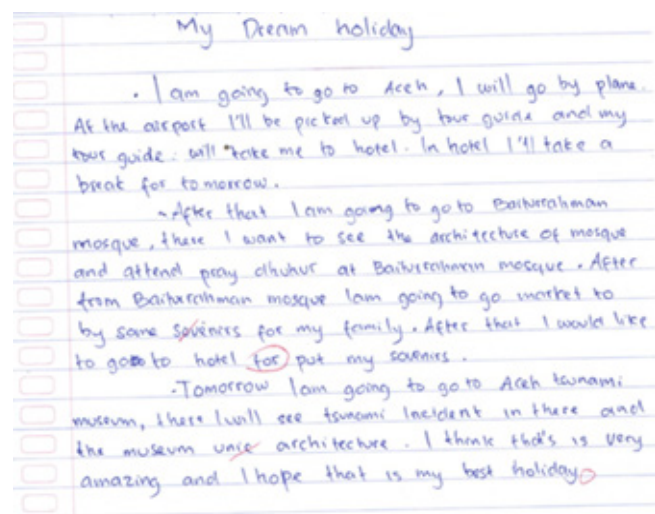 My Dream holiday
. I am going to go to Aceh, I will go by plane.
At the airport I'll be picked up by tour guide and my
tour guide. will take me to hotel. In hotel I'll take a
break for tomorrow.
- After that I am going to go to Baiturrahman
mosque, there I want to see the architecture of mosque
and attend pray dhuhur at Baiturrahman mosque. After
from Baiturrahman mosque Iam going to go market to
by some soveniers for my family. After that I would like
to go to hotel for put my sovenirs.
. Tomorrow Iam going to go to Aceh tsunami
museum, there I will see tsunami Incident in there and
the museum unic architecture. I think that's is very
amazing and I hope that is my best holiday